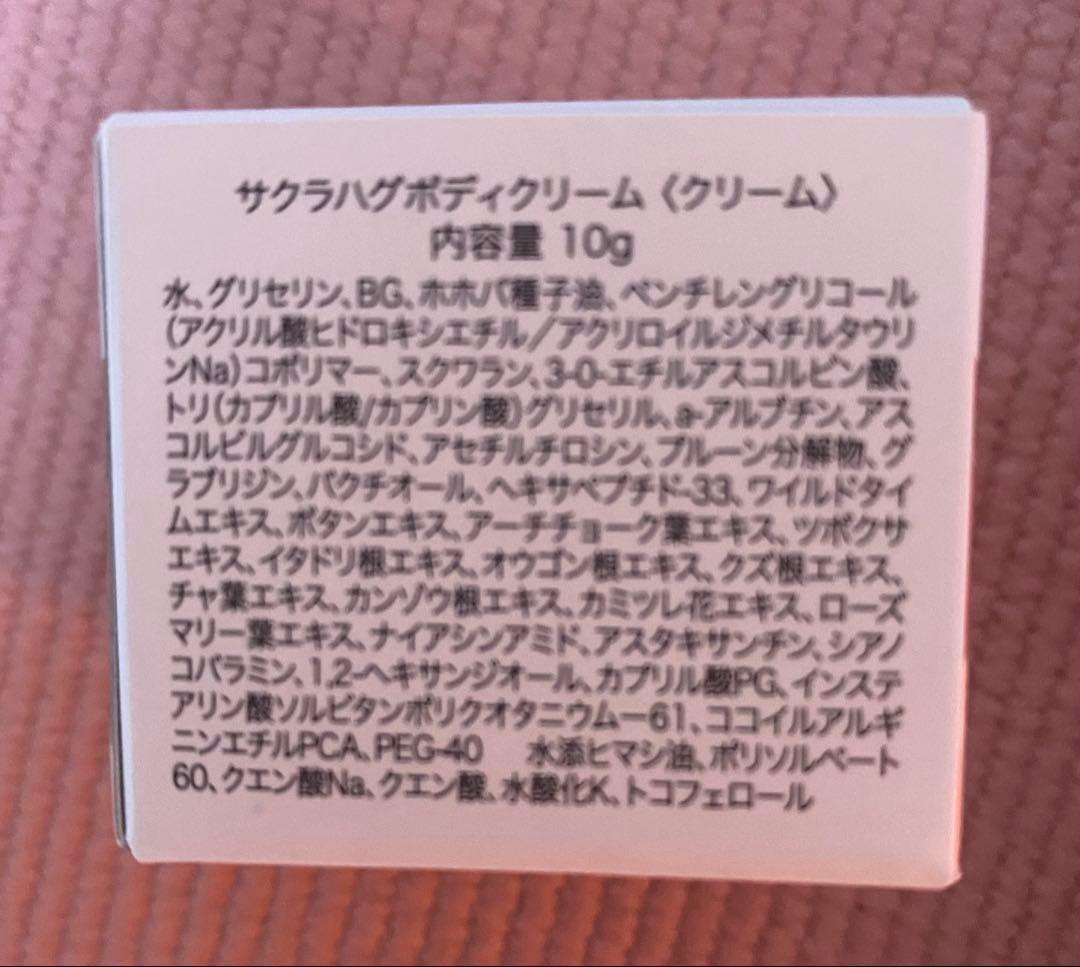 サクラハグボディクリーム〈クリーム〉
内容量 10g
水、グリセリン、BG、ホホバ種子油、ペンチレングリコール
(アクリル酸ヒドロキシエチル/アクリロイルジメチルタウリ
ンNa)コポリマー、スクワラン、3-0-エチルアスコルビン酸、
トリ(カプリル酸/カプリン酸)グリセリル、a-アルブチン、アス
コルビルグルコシド、アセチルチロシン、プルーン分解物、グ
ラブリジン、バクチオール、ヘキサペプチド-33、ワイルドタイ
ムエキス、ボタンエキス、アーチチョーク葉エキス、ツボクサ
エキス、イタドリ根エキス、オウゴン根エキス、クズ根エキス、
チャ葉エキス、カンゾウ根エキス、カミツレ花エキス、ローズ
マリー葉エキス、ナイアシンアミド、アスタキサンチン、シアノ
コバラミン、1,2-ヘキサンジオール、カプリル酸PG、インステ
アリン酸ソルビタンポリクオタニウムー61、ココイルアルギ
ニンエチルPCA、PEG-40　水添ヒマシ油、ポリソルベート
60、クエン酸Na、クエン酸、水酸化K、トコフェロール